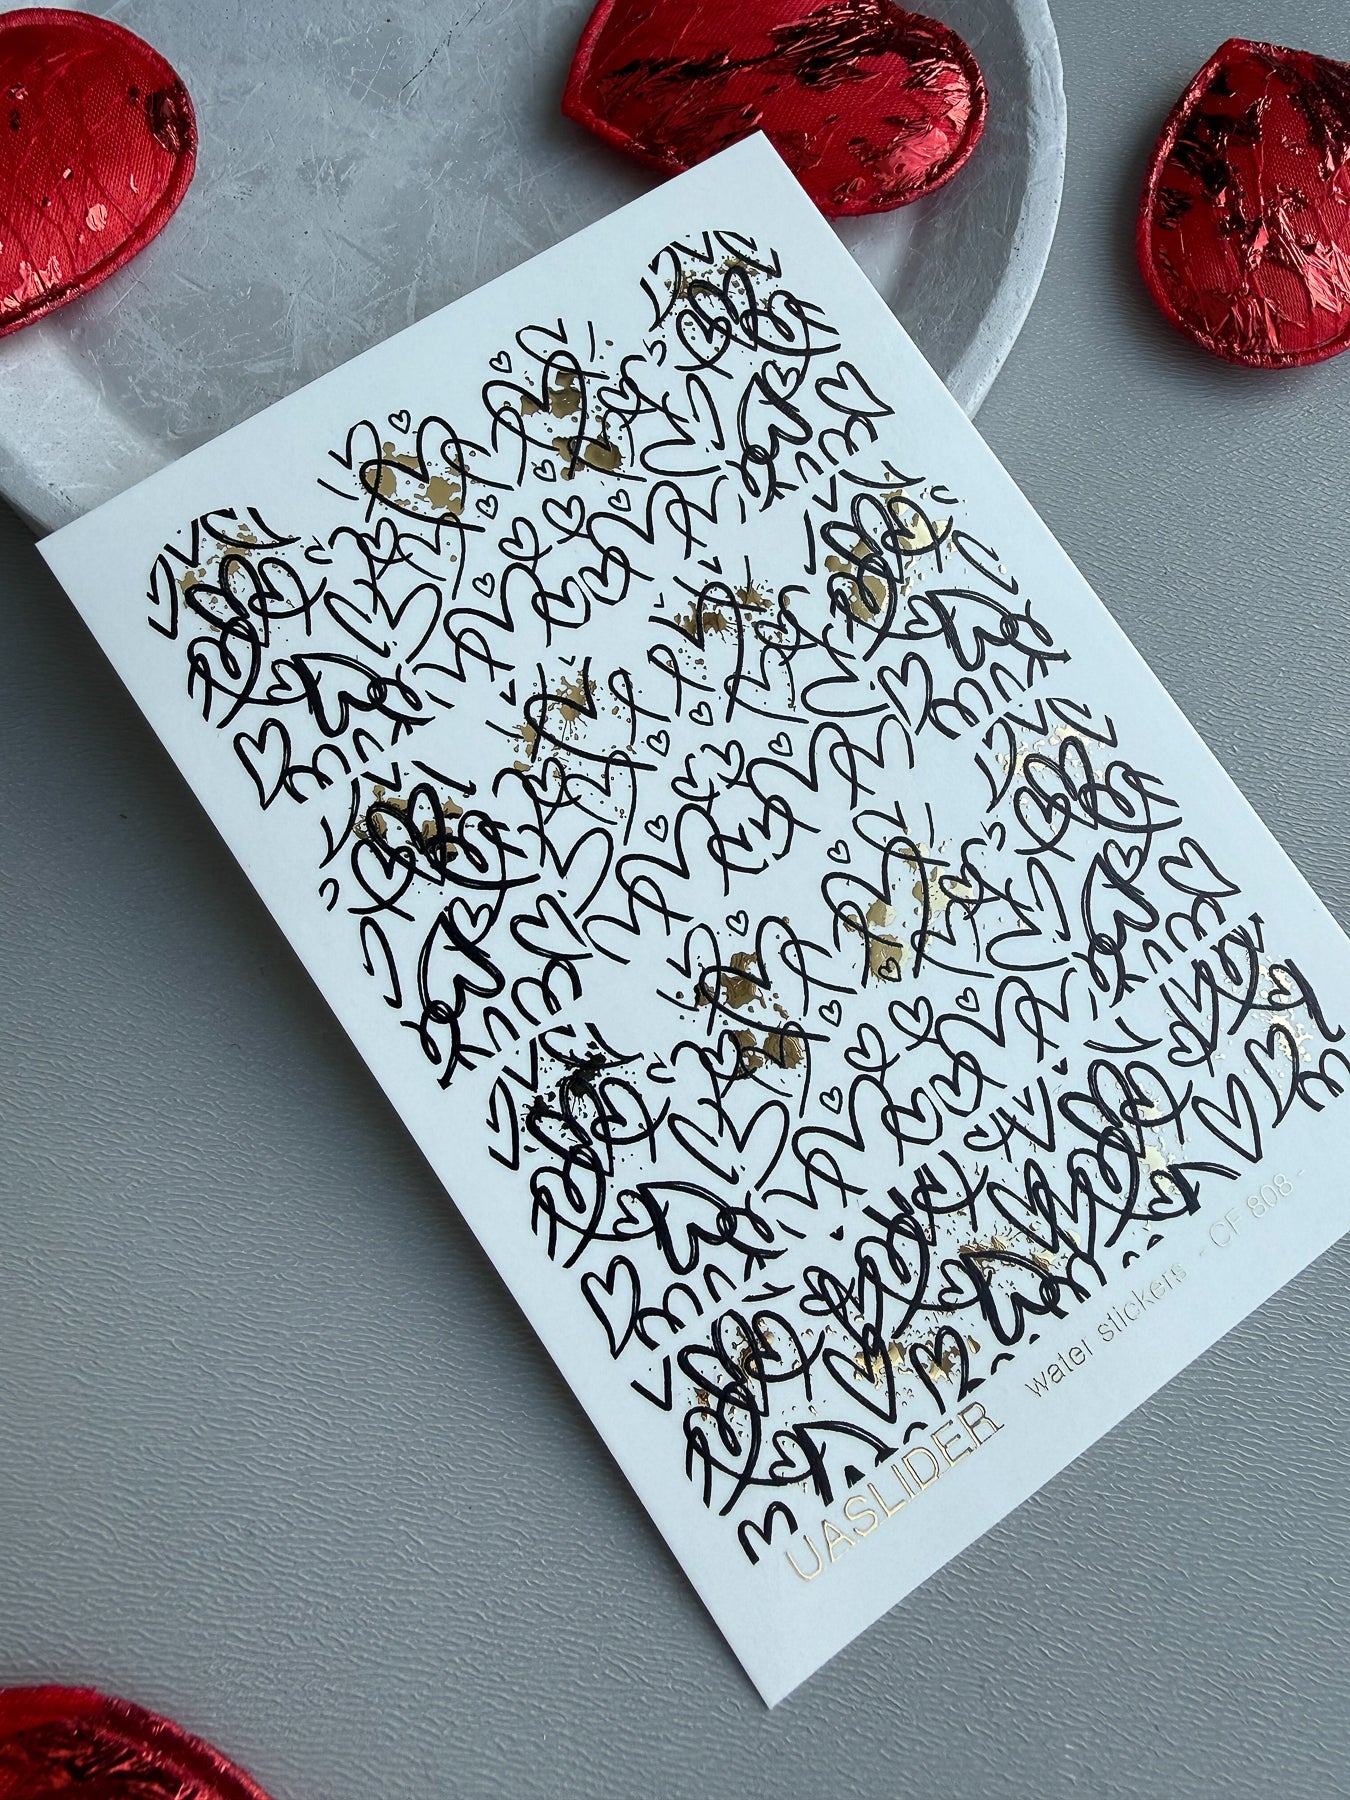 UASLIDER water stickers - CF 808 -